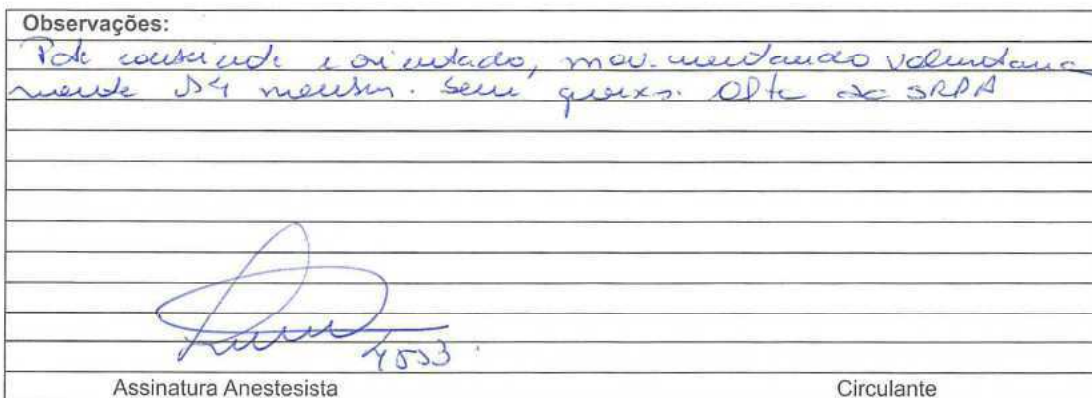 Observações:
Pcte consciente e orientado, movimentando voluntaria
mente os 4 membros. Sem queixas. Alta da SRPA
Assinatura Anestesista
Circulante